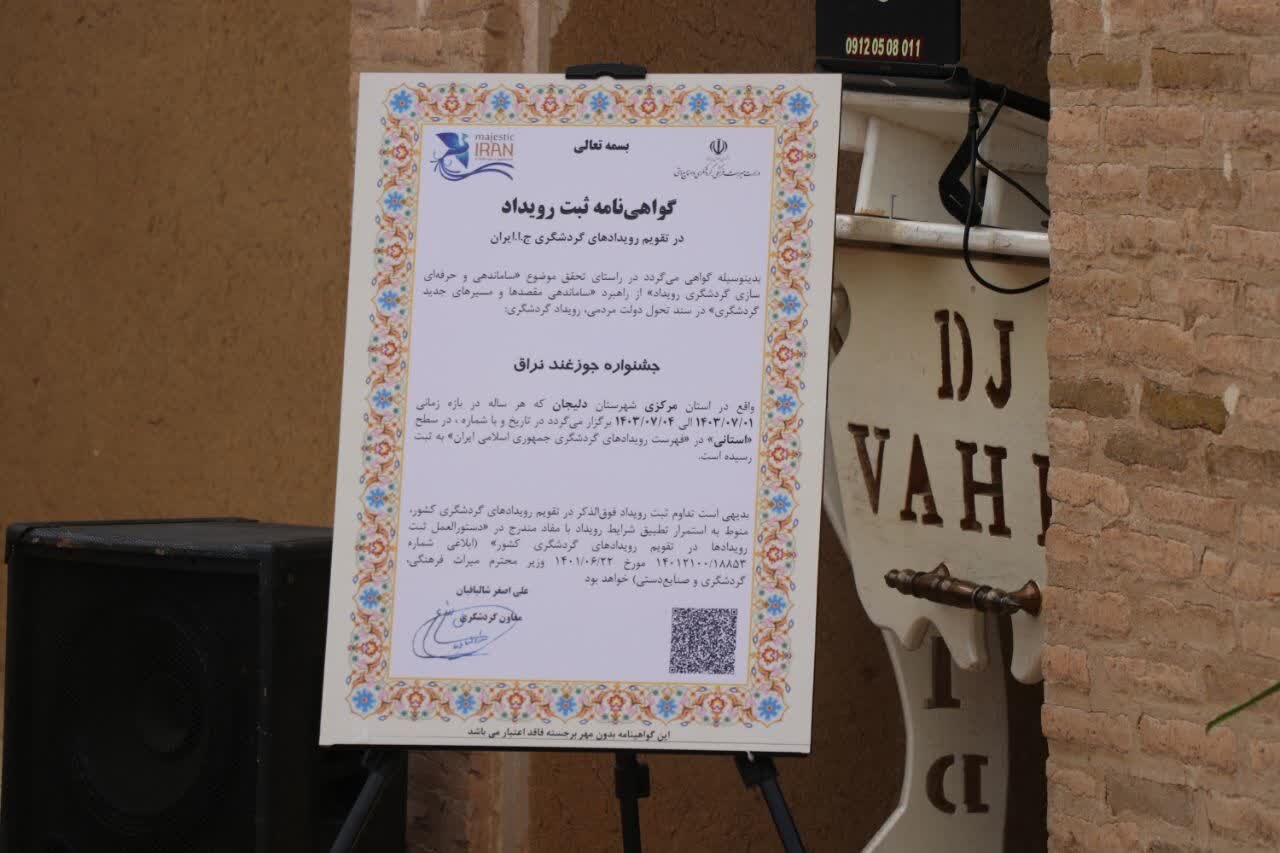 0912 05 08 011
majestic
IRAN
بسمه تعالی
گواهی‌نامه ثبت رویداد
در تقویم رویدادهای گردشگری ج.ا.ایران
بدینوسیله گواهی می‌گردد در راستای تحقق موضوع «ساماندهی و حرفه‌ای
سازی گردشگری رویداد» از راهبرد «ساماندهی مقصدها و مسیرهای جدید
گردشگری» در سند تحول دولت مردمی، رویداد گردشگری:
جشنواره جوزغند نراق
واقع در استان مرکزی شهرستان دلیجان که هر ساله در بازه زمانی
۱۴۰۳/۰۷/۰۱ الی ۱۴۰۳/۰۷/۰۴ برگزار می‌گردد در تاریخ و با شماره ، در سطح
«استانی» در «فهرست رویدادهای گردشگری جمهوری اسلامی ایران» به ثبت
رسیده است.
بدیهی است تداوم ثبت رویداد فوق‌الذکر در تقویم رویدادهای گردشگری کشور،
منوط به استمرار تطبیق شرایط رویداد با مفاد مندرج در «دستورالعمل ثبت
رویدادها در تقویم رویدادهای گردشگری کشور» (ابلاغی شماره
۱۴۰۱۲۱۰۰/۱۸۸۵۳ مورخ ۱۴۰۱/۰۶/۲۲ وزیر محترم میراث فرهنگی،
گردشگری و صنایع‌دستی) خواهد بود
علی اصغر شالبافیان
معاون گردشگری
این گواهینامه بدون مهر برجسته فاقد اعتبار می باشد
DJ
VAH